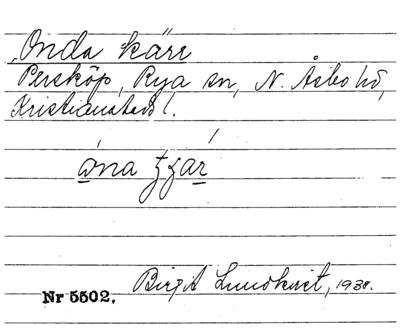 Onda kärr
Persköp, Rya sn, N. Åsbo hd,
Kristianstads l.
Nr 5502. Birgit Lundkvist, 1930.